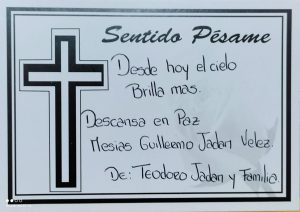 Sentido Pésame
Desde hoy el cielo
Brilla mas.
Descansa en Paz
Mesias Guillermo Jadan Velez.
De: Teodoro Jadan y Familia.